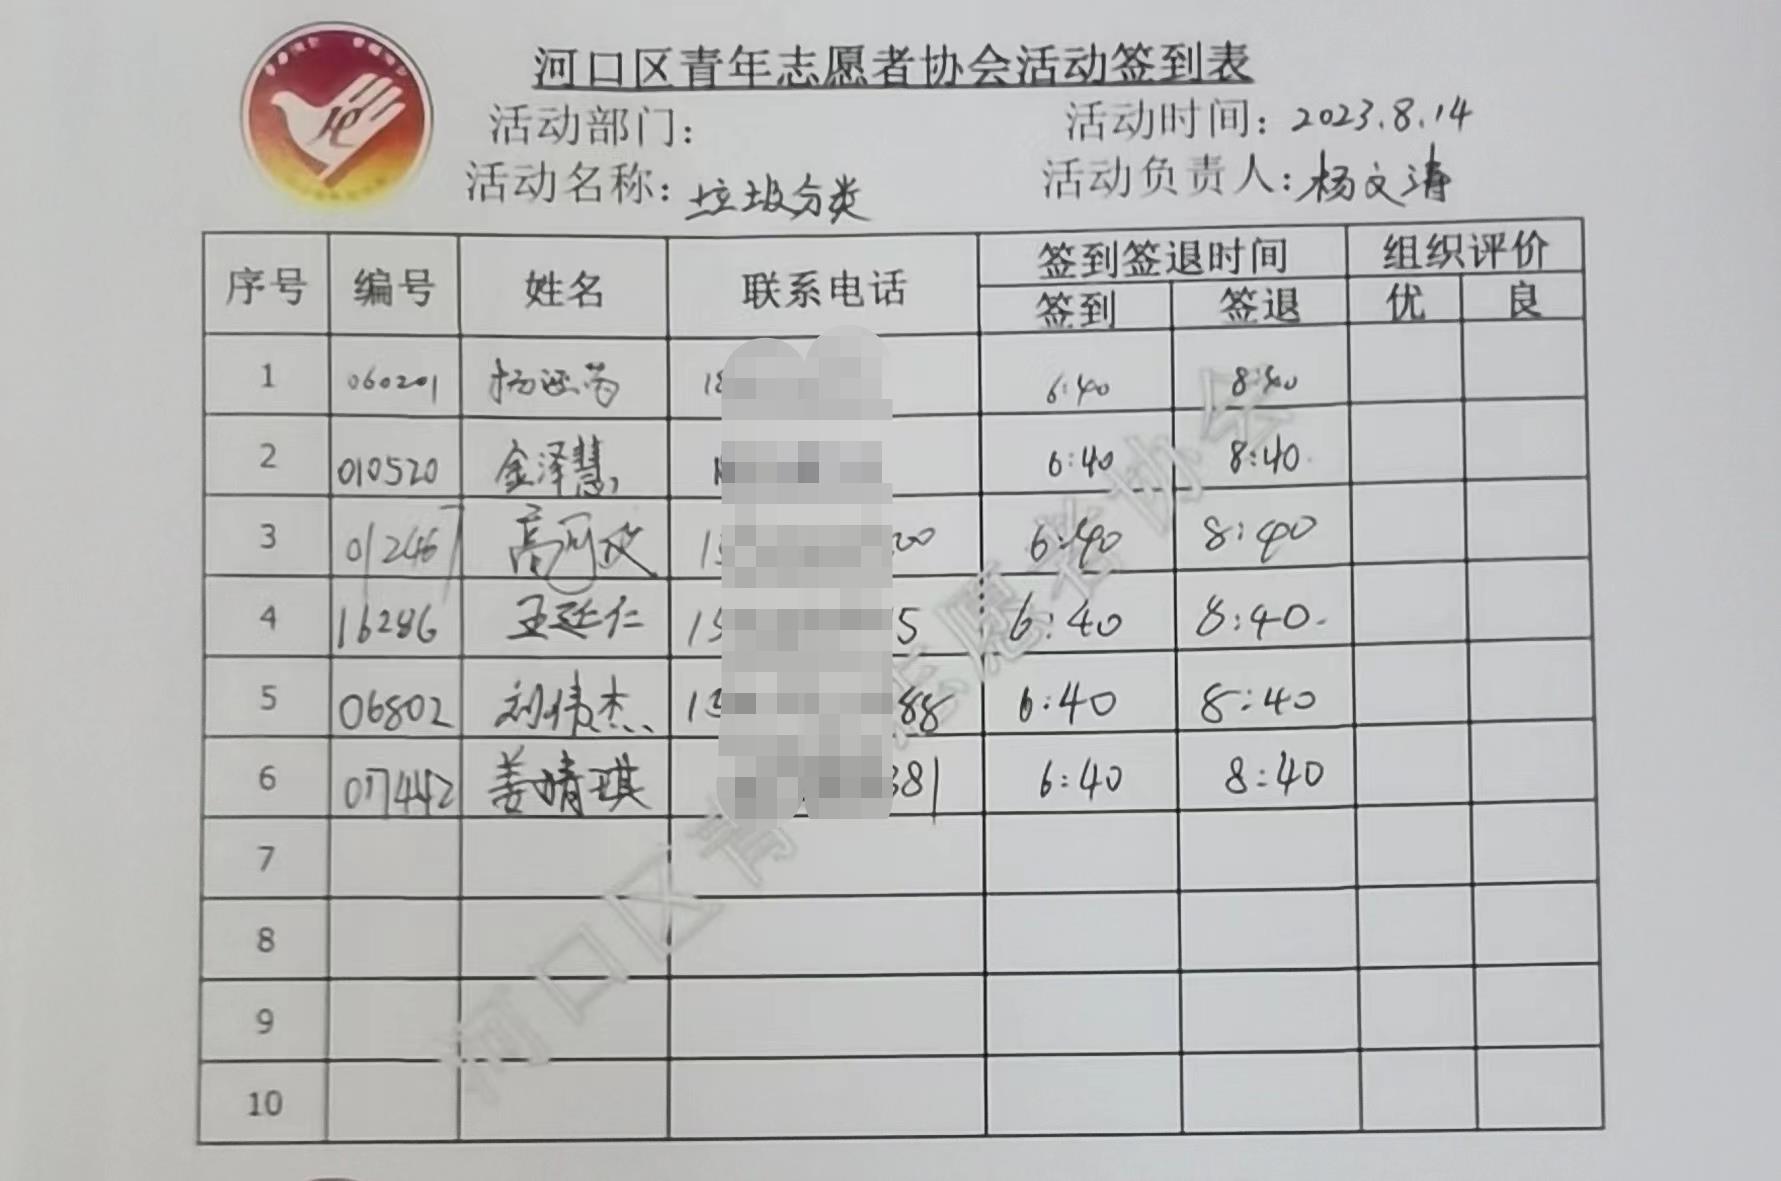 河口区青年志愿者协会活动签到表
活动部门:
活动时间: 2023.8.14
活动名称: 垃圾分类
活动负责人: 杨文涛
序号 编号 姓名 联系电话 签到签退时间 组织评价
签到 签退 优 良
1 060201 18 6:40 8:40
2 010520 金泽慧 1 6:40 8:40
3 012467 高 15 00 6:40 8:40
4 16286 王延仁 15 5 6:40 8:40
5 06802 刘伟杰 13 88 6:40 8:40
6 017442 姜婧琪 381 6:40 8:40
7
8
9
10
河口区青 志愿者协会